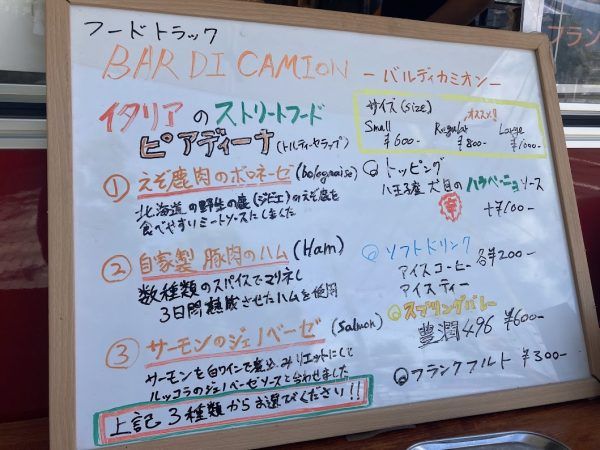 フードトラック
BAR DI CAMION －バルディカミオン－
イタリアのストリートフード
ピアディーナ(トルティーヤラップ)
① えぞ鹿肉のボロネーゼ(bolognaise)
北海道の野生の鹿(ジビエ)のえぞ鹿を
食べやすいミートソースにしました
② 自家製 豚肉のハム(Ham)
数種類のスパイスでマリネし
3日間熟成させたハムを使用
③ サーモンのジェノベーゼ(Salmon)
サーモンを白ワインで煮込みリエットにして
ルッコラのジェノベーゼソースと合わせました
上記3種類からお選びください!!
サイズ(size) オススメ!!
Small Regular Large
¥600- ¥800- ¥1000-
トッピング
八王子産 犬目のハラペーニョソース
辛 +¥100-
ソフトドリンク 各¥200-
アイスコーヒー
アイスティー
スプリングバレー
豊潤496 ¥600-
フランクフルト ¥300-
フラン